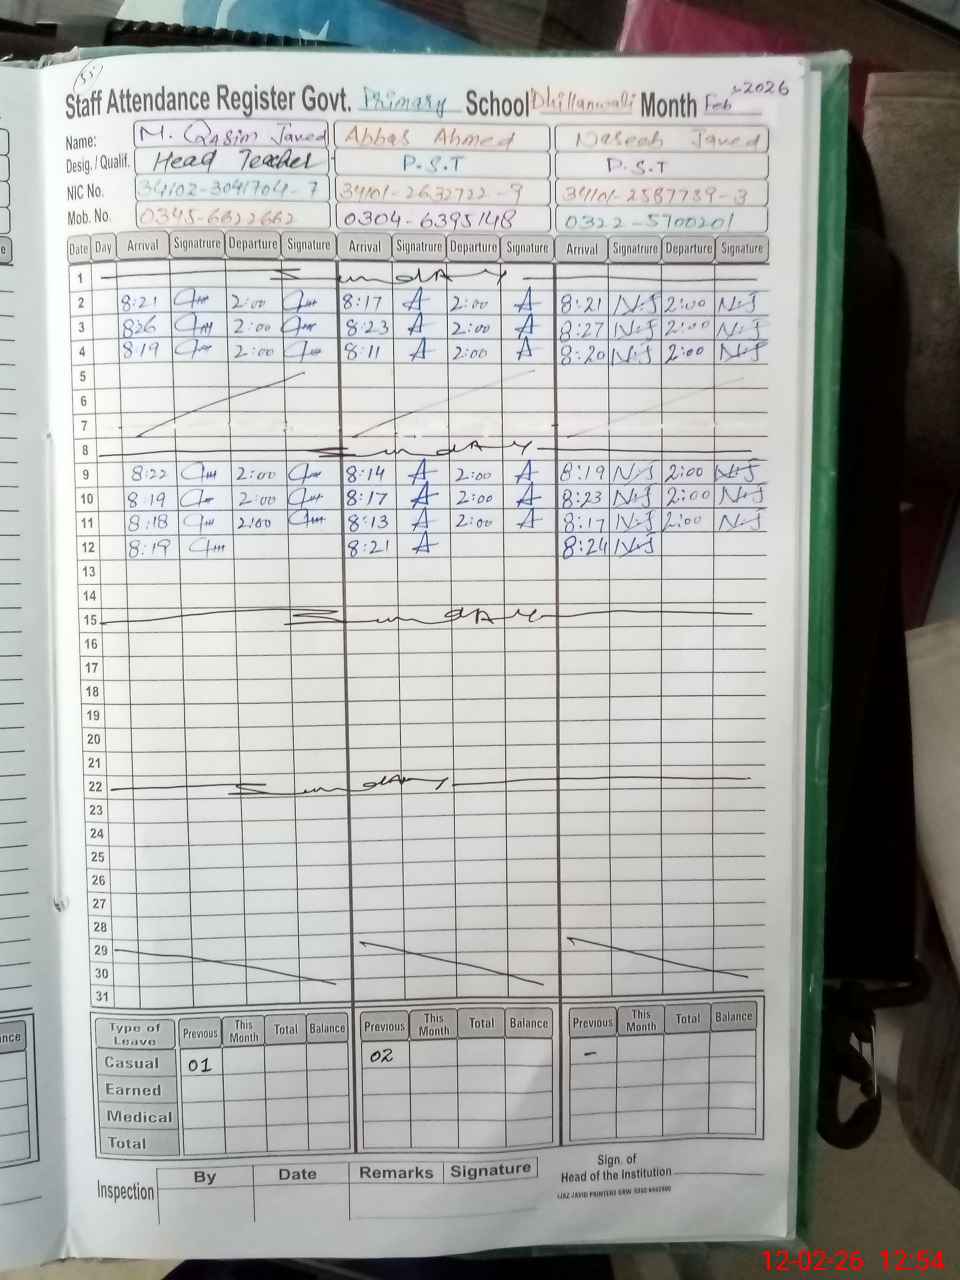 55
Staff Attendance Register Govt. Primary School Dhillanwali Month Feb 2026
Name: M. Qasim Javed Abbas Ahmed Naseeb Javed
Desig. / Qualif. Head Teacher P.S.T P.S.T
NIC No. 34102-3041704-7 34101-2632722-9 34101-2587739-3
Mob. No. 0345-6622662 0304-6395148 0322-5700201
Date Day Arrival Signatrure Departure Signature Arrival Signatrure Departure Signature Arrival Signatrure Departure Signature
1 Sunday
2 8:21 2:00 8:17 A 2:00 A 8:21 N.J 2:00 N.J
3 826 2:00 8:23 A 2:00 A 8:27 N.J 2:00 N.J
4 8:19 2:00 8:11 A 2:00 A 8:20 N.J 2:00 N.J
5
6
7
8 Sunday
9 8:22 2:00 8:14 A 2:00 A 8:19 N.J 2:00 N.J
10 8:19 2:00 8:17 A 2:00 A 8:23 N.J 2:00 N.J
11 8:18 2:00 8:13 A 2:00 A 8:17 N.J 2:00 N.J
12 8:19 8:21 A 8:24 N.J
13
14
15 Sunday
16
17
18
19
20
21
22 Sunday
23
24
25
26
27
28
29
30
31
Type of Leave Previous This Month Total Balance Previous This Month Total Balance Previous This Month Total Balance
Casual 01 02 -
Earned
Medical
Total
Inspection By Date Remarks Signature
Sign. of
Head of the Institution
IJAZ JAVID PRINTERS GRW
12-02-26 12:54